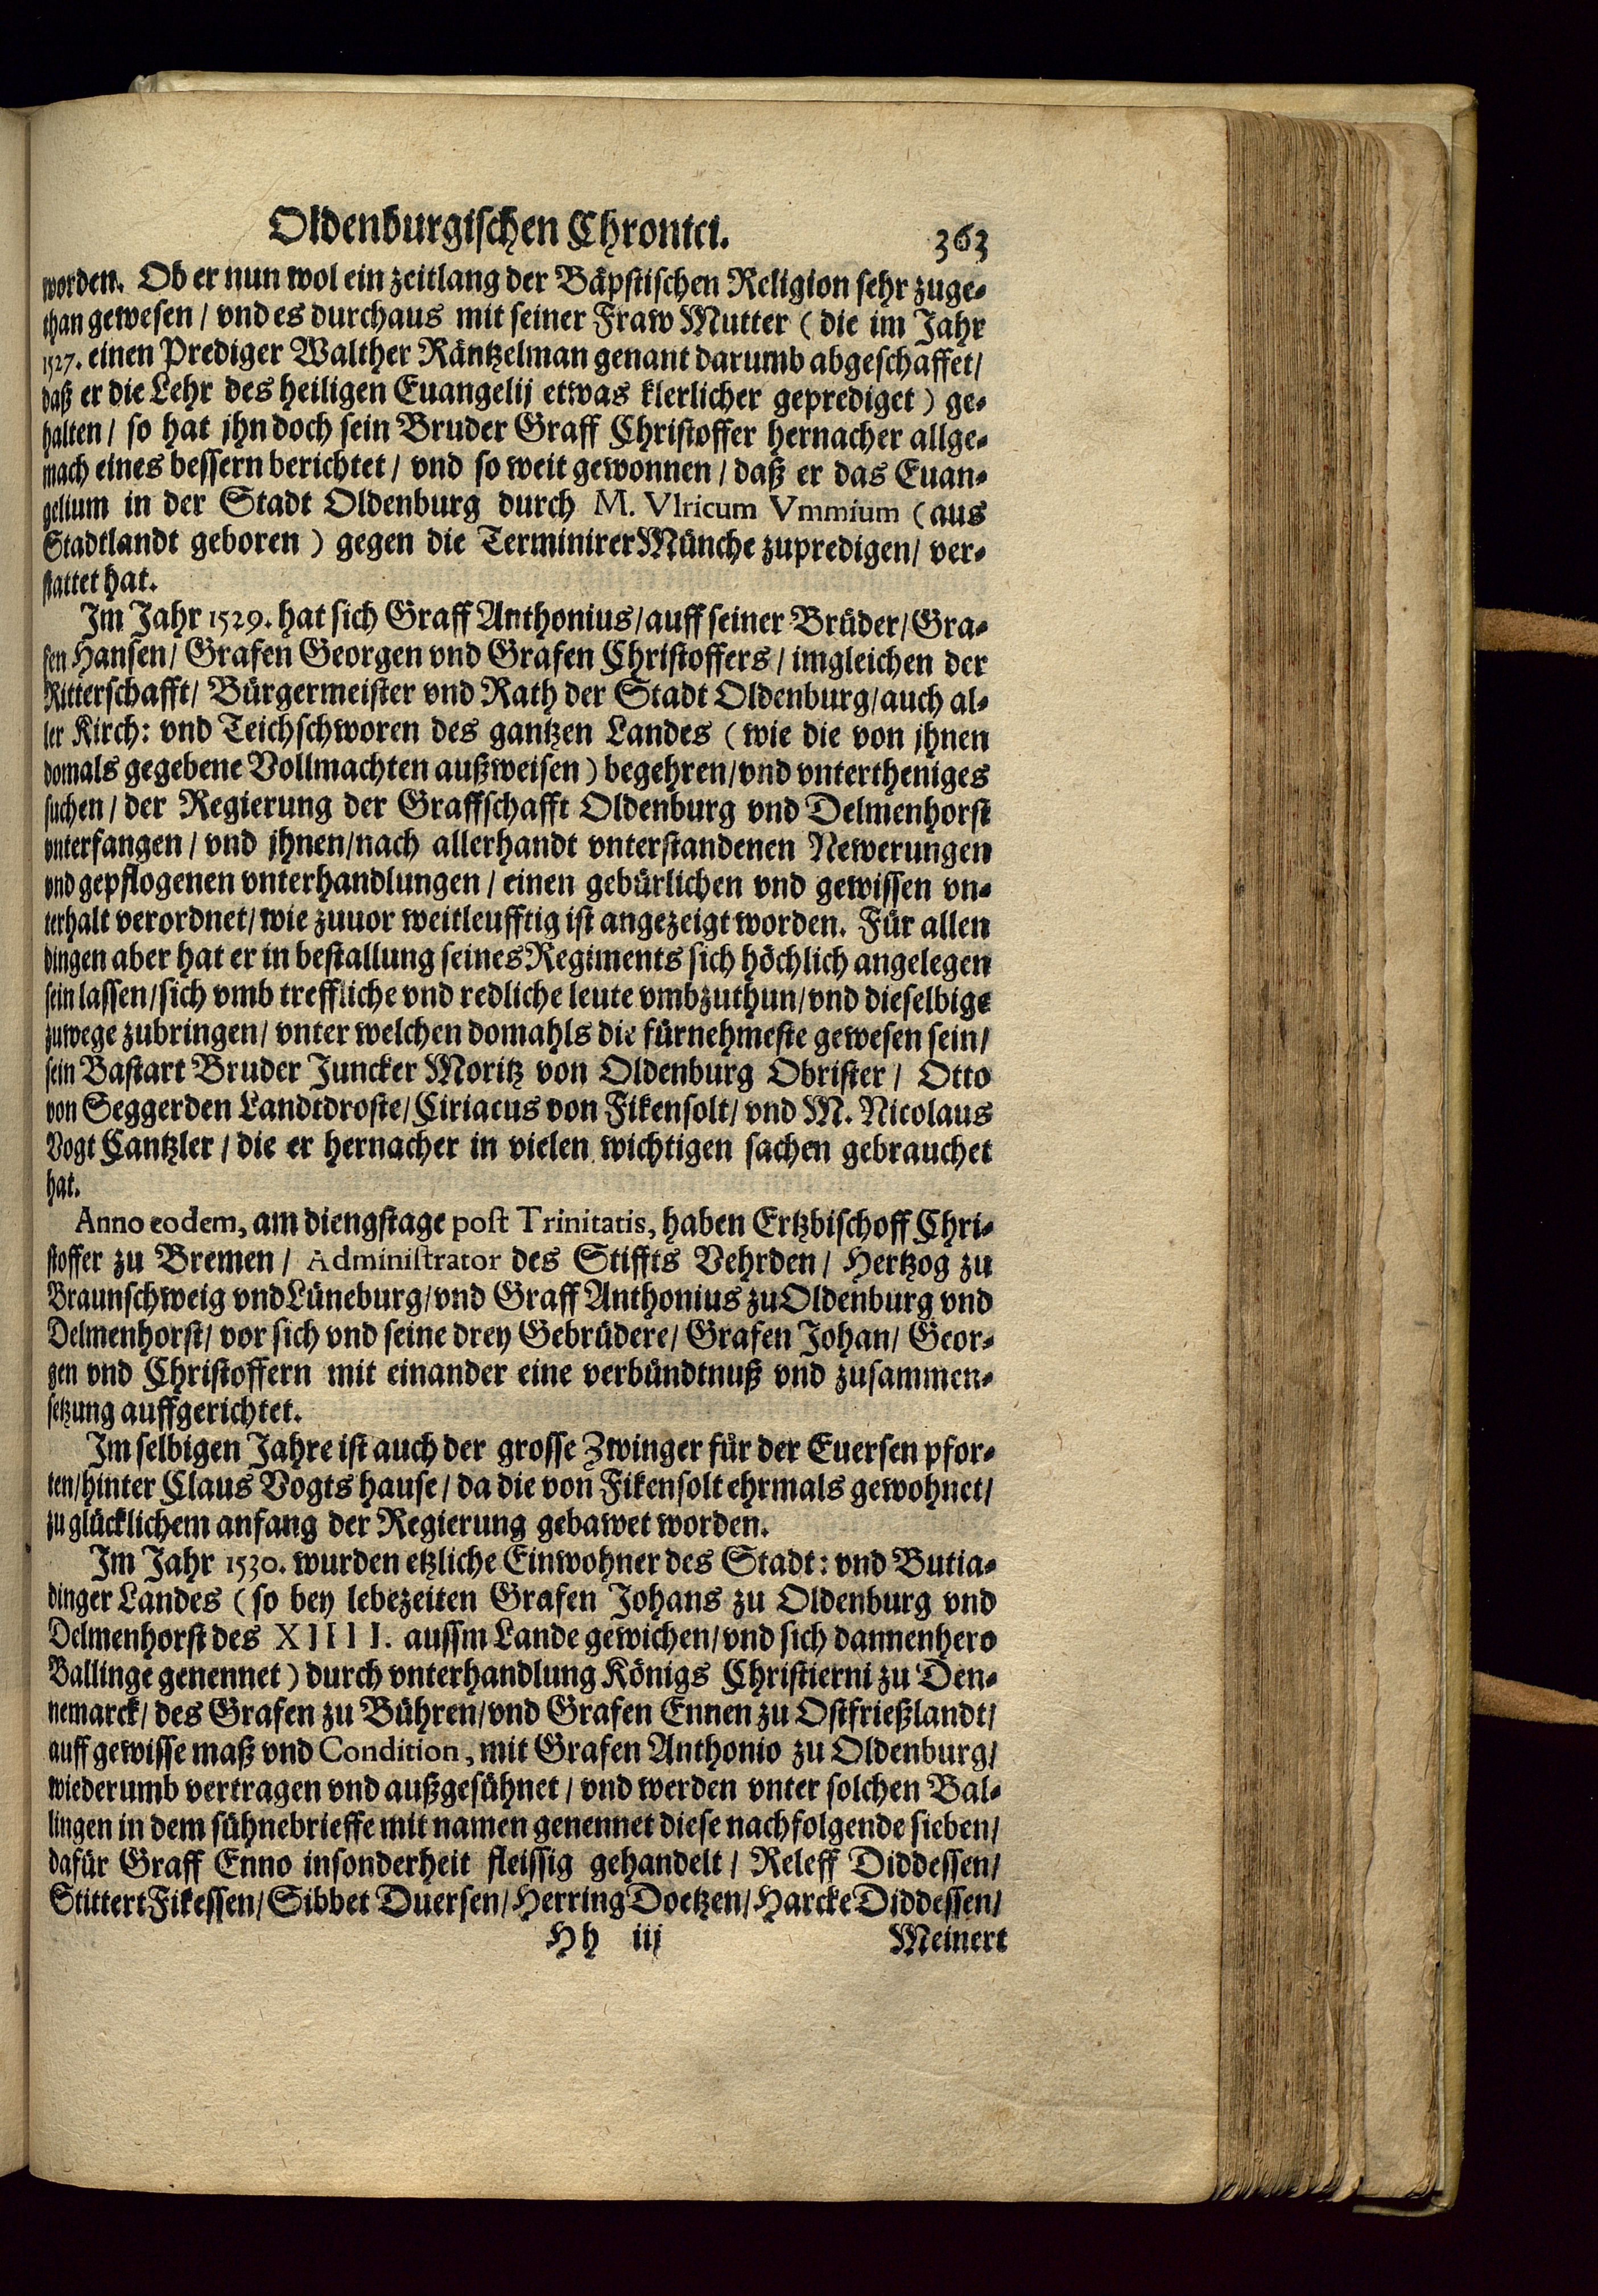 Oldenburgischen Chronici. 363
worden. Ob er nun wol ein zeitlang der Bäpstischen Religion sehr zuge-
than gewesen / vnd es durchaus mit seiner Fraw Mutter (die im Jahr
1527. einen Prediger Walther Räntzelman genant darumb abgeschaffet/
daß er die Lehr des heiligen Euangelij etwas klerlicher geprediget) ge-
halten / so hat jhn doch sein Bruder Graff Christoffer hernacher allge-
mach eines bessern berichtet / vnd so weit gewonnen / daß er das Euan-
gelium in der Stadt Oldenburg durch M. Vlricum Vmmium (aus
Stadtlandt geboren) gegen die Terminirer Münche zupredigen / ver-
stattet hat.
Im Jahr 1529. hat sich Graff Anthonius / auff seiner Brüder / Gra-
fen Hansen / Grafen Georgen vnd Grafen Christoffers / imgleichen der
Ritterschafft / Bürgermeister vnd Rath der Stadt Oldenburg / auch al-
ler Kirch: vnd Teichschworen des gantzen Landes (wie die von jhnen
domals gegebene Vollmachten außweisen) begehren / vnd vntertheniges
suchen / der Regierung der Graffschafft Oldenburg vnd Delmenhorst
vnterfangen / vnd jhnen / nach allerhandt vnterstandenen Newerungen
vnd gepflogenen vnterhandlungen / einen gebürlichen vnd gewissen vn-
terhalt verordnet / wie zuuor weitleufftig ist angezeigt worden. Für allen
dingen aber hat er in bestallung seines Regiments sich höchlich angelegen
sein lassen / sich vmb treffliche vnd redliche leute vmbzuthun / vnd dieselbige
zuwege zubringen / vnter welchen domahls die fürnehmeste gewesen sein /
sein Bastart Bruder Juncker Moritz von Oldenburg Obrister / Otto
von Seggerden Landtdroste / Ciriacus von Fikensolt / vnd M. Nicolaus
Vogt Cantzler / die er hernacher in vielen wichtigen sachen gebrauchet
hat.
Anno eodem, am diengstage post Trinitatis, haben Ertzbischoff Chri-
stoffer zu Bremen / Administrator des Stiffts Vehrden / Hertzog zu
Braunschweig vnd Lüneburg / vnd Graff Anthonius zu Oldenburg vnd
Delmenhorst / vor sich vnd seine drey Gebrüdere / Grafen Johan / Geor-
gen vnd Christoffern mit einander eine verbündtnuß vnd zusammen-
setzung auffgerichtet.
Im selbigen Jahre ist auch der grosse Zwinger für der Euersen pfor-
ten / hinter Claus Vogts hause / da die von Fikensolt ehrmals gewohnet /
zu glücklichem anfang der Regierung gebawet worden.
Im Jahr 1530. wurden etzliche Einwohner des Stadt: vnd Butia-
dinger Landes (so bey lebezeiten Grafen Johans zu Oldenburg vnd
Delmenhorst des XIIII. aussm Lande gewichen / vnd sich dannenhero
Ballinge genennet) durch vnterhandlung Königs Christierni zu Den-
nemarck / des Grafen zu Bühren / vnd Grafen Ennen zu Ostfrießlandt /
auff gewisse maß vnd Condition, mit Grafen Anthonio zu Oldenburg /
wiederumb vertragen vnd außgesühnet / vnd werden vnter solchen Bal-
lingen in dem sühnebrieffe mit namen genennet diese nachfolgende sieben /
dafür Graff Enno insonderheit fleissig gehandelt / Releff Diddessen /
Stittert Fikessen / Sibbet Duersen / Herring Doetzen / Harcke Diddessen /
Hh iij Meinert